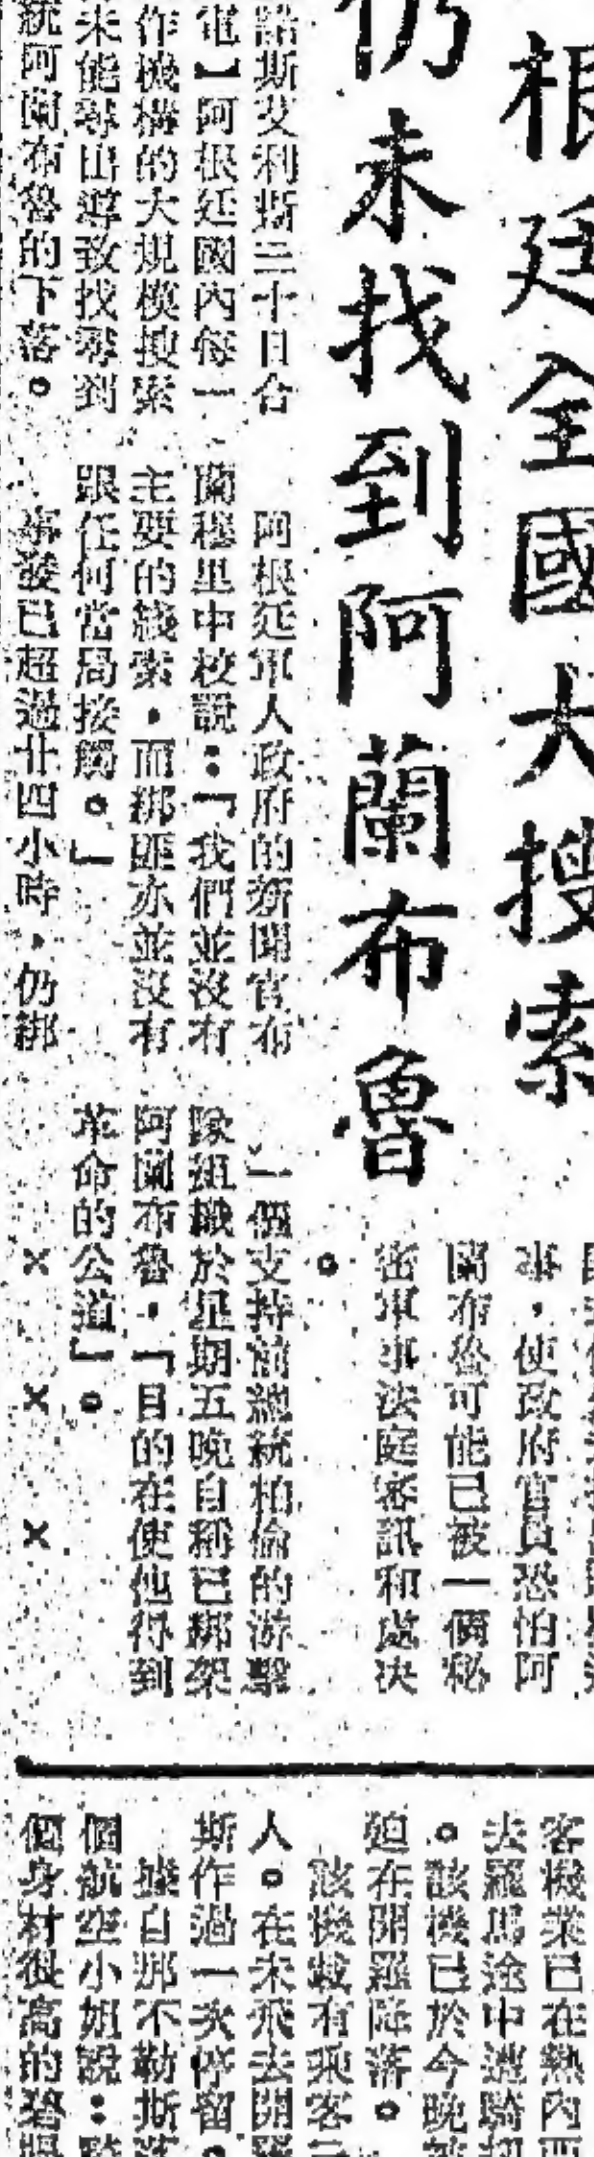 根廷全國大搜索
仍未找到阿蘭布魯
諾斯艾利斯三十日合
電】阿根廷國內每一
作機構的大規模搜索
未能尋出導致找尋到
統阿蘭布魯的下落。
阿根廷軍人政府的新聞官布
蘭穆里中校說：「我們並沒有
主要的綫索，而綁匪亦並沒有
跟任何當局接觸。」
事發已超過廿四小時，仍綁
事，使政府官員恐怕阿
蘭布魯可能已被一個秘
密軍事法庭審訊和處决
。
一個支持前總統柏倫的游擊
隊組織於星期五晚自稱已綁架
阿蘭布魯，「目的在使他得到
革命的公道」。
× × ×
客機業已在熱內
去羅馬途中遭騎刧
。該機已於今晚被
迫在開羅降落。
該機載有乘客二
人。在未飛去開羅
斯作過一次停留。
據自那不勒斯
個航空小姐說：
個身材很高的